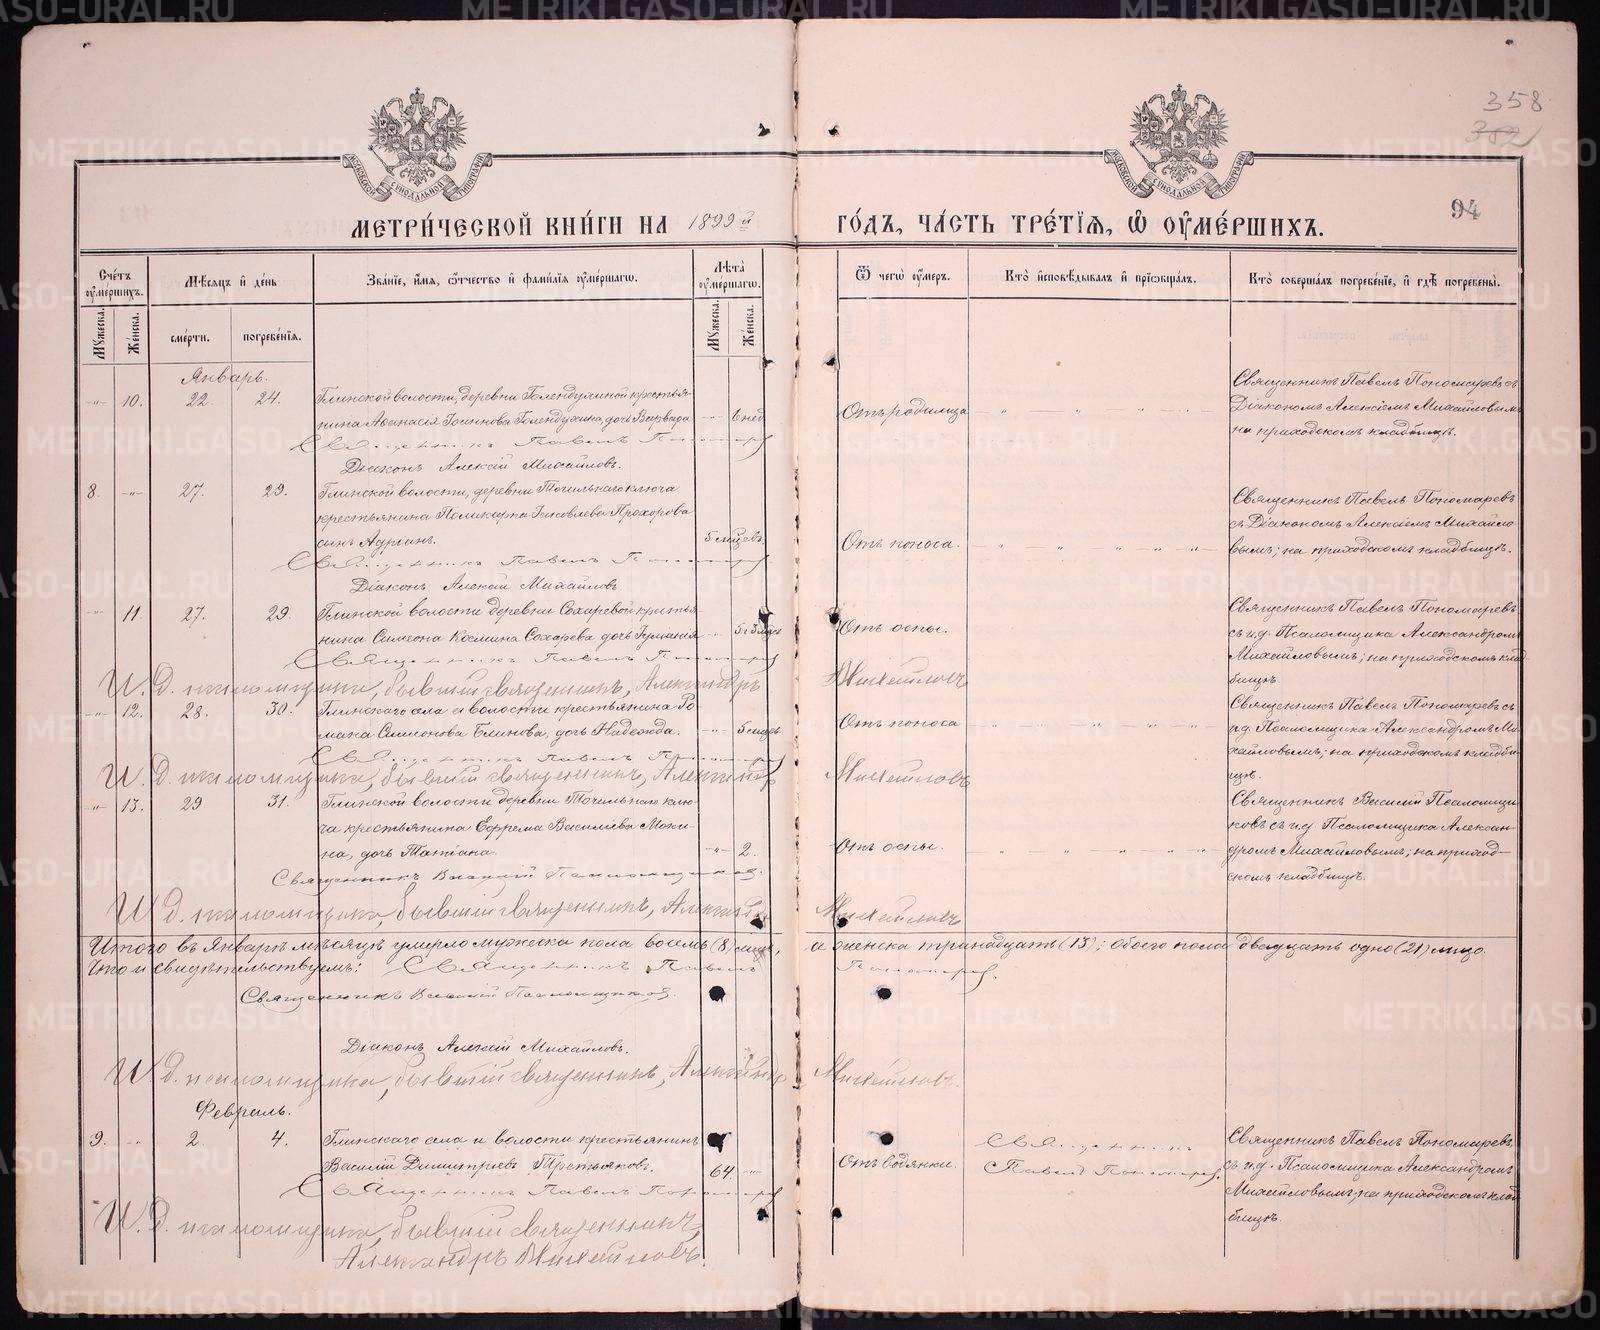 358
382
94
МОСКОВСКОЙ СѴНОДАЛЬНОЙ ТИПОГРАФІИ
МОСКОВСКОЙ СѴНОДАЛЬНОЙ ТИПОГРАФІИ
МЕТРИ́ЧЕСКОЙ КНИ́ГИ НА 1899й ГО́ДЪ, ЧА́СТЬ ТРЕ́ТІЯ, Ѡ҆ ОУ҆МЕ́РШИХЪ.
Сче́тъ оу҆ме́ршихъ.
Мѣ́сяцъ и҆ де́нь
Зва́ніе, и҆́мя, ѻ҆́тчество и҆ фамі́лія оу҆ме́ршагѡ.
Лѣ́та оу҆ме́ршагѡ.
Ѿ чегѡ̀ оу҆́меръ.
Кто̀ и҆сповѣ́дывалъ и҆ прїѡбща́лъ.
Кто̀ соверша́лъ погребе́ніе, и҆ гдѣ̀ погребены̀.
Му́жеска.
Же́нска.
сме́рти.
погребе́нїя.
Му́жеска.
Же́нска.
Январь.
-"- 10. 22. 24. Глинской волости, деревни Голендухиной крестья-
нина Аѳанасія Іоаннова Голендухина, дочь Варвара -"- 6 нед Отъ родимца
Священникъ Павелъ Пономаревъ съ
Діакономъ Алексіемъ Михайловымъ
на приходскомъ кладбищѣ.
Священникъ Павелъ Пономарев
Діаконъ Алексій Михайловъ.
8. -"- 27. 29. Глинской волости, деревни Точильнаго ключа
крестьянина Поликарпа Іаковлева Прохорова
сынъ Адріанъ. 5 мѣцевъ Отъ поноса.
Священникъ Павелъ Пономаревъ
съ Діакономъ Алексіемъ Михайло-
вымъ; на приходскомъ кладбищѣ.
Священникъ Павелъ Пономарев
Діаконъ Алексій Михайловъ
-"- 11. 27. 29. Глинской волости деревни Сохаревой крестья-
нина Симеона Космина Сохарева дочь Отъ оспы.
Священникъ Павелъ Пономаревъ
съ и.д. Псаломщика Александромъ
Михайловымъ; на приходскомъ клад-
бищѣ.
Священникъ Павелъ Пономарев
И. д. псаломщика, бывшій священникъ, Александръ Михайловъ
-"- 12. 28. 30. Глинскаго села и волости крестьянина Ро-
мана Симеонова Блинова, дочь Надежда. -"- 5 мѣцевъ Отъ поноса
Священникъ Павелъ Пономаревъ съ
и.д. Псаломщика Александромъ Ми-
хайловымъ; на приходскомъ кладби-
щѣ.
Священникъ Павелъ Пономарев
И. д. псаломщика, бывшій священникъ, Александръ Михайловъ
-"- 13. 29 31. Глинской волости деревни Точильнаго клю-
ча крестьянина Ефрема Василіева Моки-
на, дочь Татіана. -"- 2. Отъ оспы.
Священникъ Василій Псаломщи-
ковъ съ и.д Псаломщика Алексан-
дромъ Михайловымъ; на приход-
скомъ кладбищѣ.
Священникъ Василій Псаломщиковъ.
И д. псаломщика, бывшій священникъ, Александръ Михайловъ
Итого въ Январѣ мѣсяцѣ умерло мужеска пола восемь (8) лицъ, а женска тринадцать (13); обоего пола двадцать одно (21) лицо.
Что и свидѣтельствуемъ: Священникъ Павелъ Пономарев.
Священникъ Василій Псаломщиковъ.
Діаконъ Алексій Михайловъ.
И д. псаломщика, бывшій священникъ, Александръ Михайловъ.
Февраль.
9. -"- 2. 4. Глинскаго села и волости крестьянинъ
Василій Димитріевъ Третьяковъ. 64. -"- Отъ водянки.
Священникъ
Павелъ Пономарев.
Священникъ Павелъ Пономаревъ
съ и.д. Псаломщика Александромъ
Михайловымъ; на приходскомъ клад-
бищѣ.
Священникъ Павелъ Пономарев
И. д. псаломщика, бывшій священникъ,
Александръ Михайловъ.
METRIKI.GASO-URAL.RU